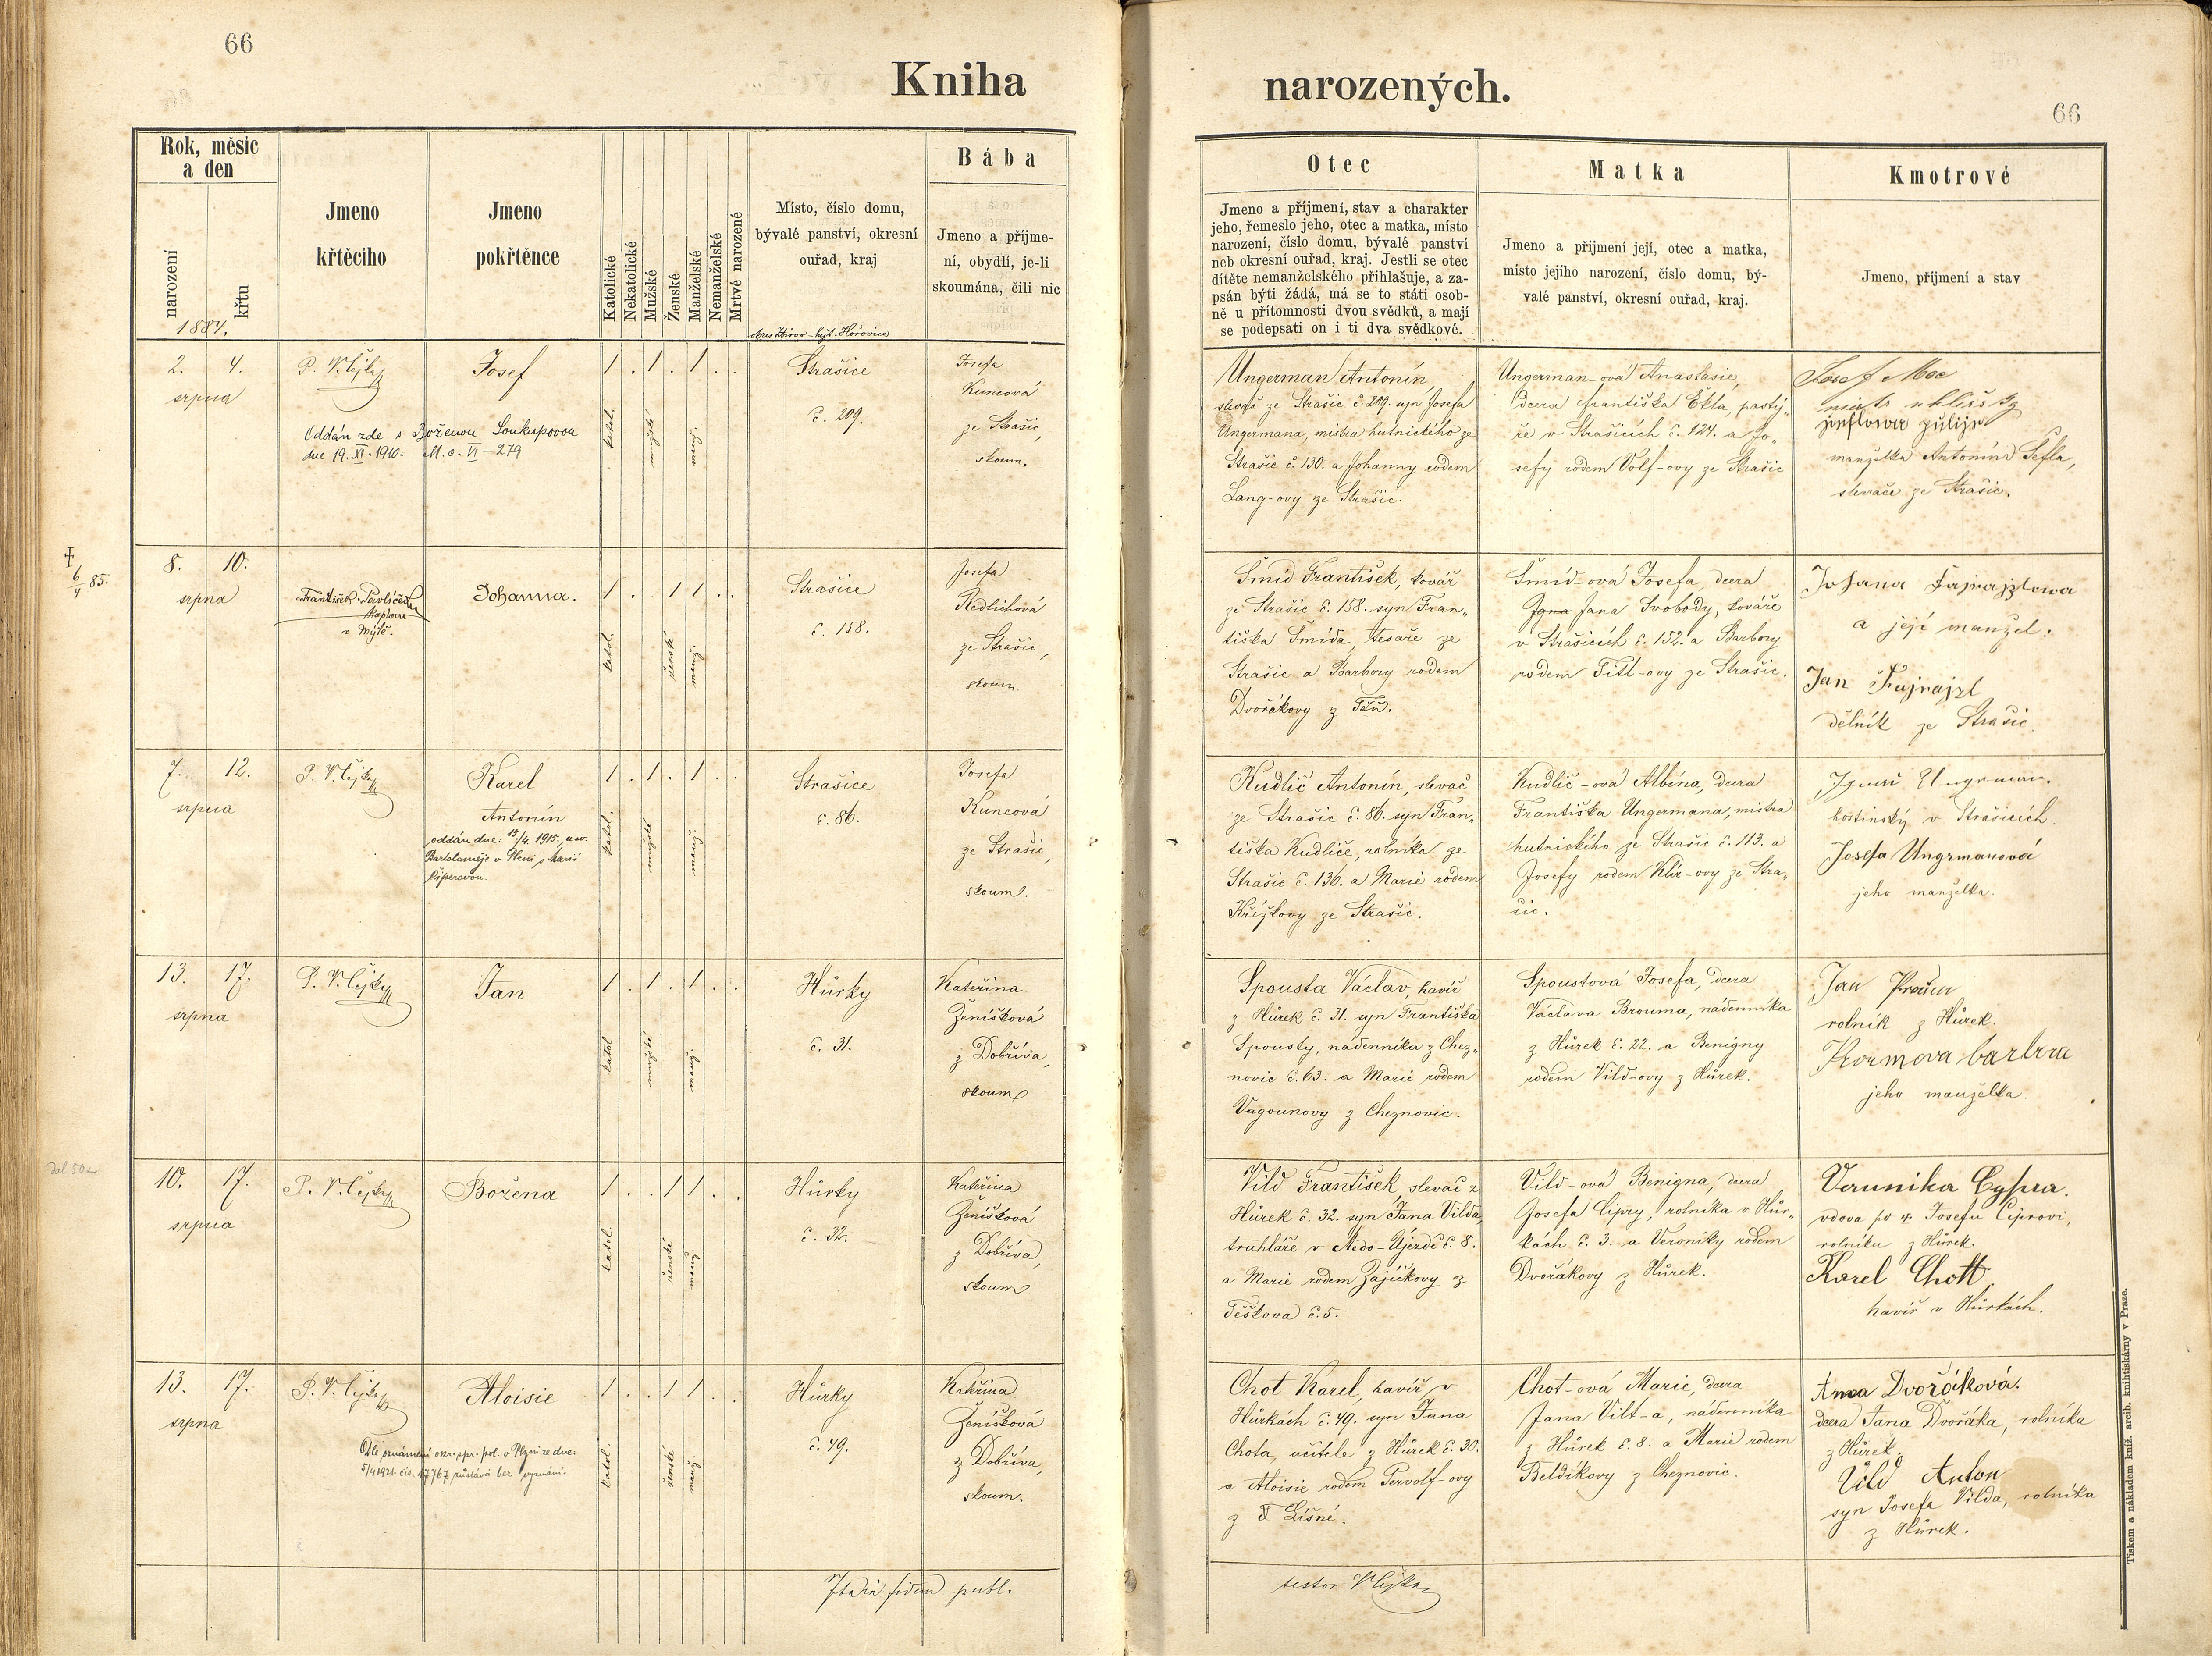 66
Kniha
narozených.
66
Rok, měsíc
a den
narození
křtu
1884.
Jmeno
křtěcího
Jmeno
pokřtěnce
Katolické
Nekatolické
Mužské
Ženské
Manželské
Nemanželské
Mrtvé narozené
Místo, číslo domu,
bývalé panství, okresní
ouřad, kraj
Bába
Jmeno a příjme-
ní, obydlí, je-li
skoumána, čili nic
Otec
Jmeno a příjmení, stav a charakter
jeho, řemeslo jeho, otec a matka, místo
narození, číslo domu, bývalé panství
neb okresní ouřad, kraj. Jestli se otec
dítěte nemanželského přihlašuje, a za-
psán býti žádá, má se to státi osob-
ně u přítomnosti dvou svědků, a mají
se podepsati on i ti dva svědkové.
Matka
Jmeno a přijmení její, otec a matka,
místo jejího narození, číslo domu, bý-
valé panství, okresní ouřad, kraj.
Kmotrové
Jmeno, příjmení a stav
2. 4.
srpna
Josef
Oddán zde s Boženou Soukupovou
dne 19. XI. 1910. M. o. VI - 279
1 . 1 . 1 . .
katol.
mužské
manž.
Strašice
č. 209.
Josefa
Kuncová
ze Strašic,
skoum.
Ungerman Antonín,
slevač ze Strašic č. 209. syn Josefa
Ungermana, mistra hutnického ze
Strašic č. 130. a Johanny rodem
Lang-ovy ze Strašic.
Ungerman-ová Anastasie,
dcera Františka Ekla, pastý-
ře v Strašicích č. 124. a Jo-
sefy rodem Volf-ovy ze Strašic
Josef
manželka Antonína Šefla,
slevače ze Strašic.
6/4 85.
8. 10.
srpna
František Pavlíček
kaplan
v Mýtě.
Johanna.
1 . . 1 1 . .
katol.
ženské
manž.
Strašice
č. 158.
Josefa
Redlichová
ze Strašic,
skoum.
Šmíd František, kovář
ze Strašic č. 158. syn Fran-
tiška Šmída, tesaře ze
Strašic a Barbory rodem
Dvořákovy z Těň.
Šmíd-ová Josefa, dcera
Jana Svobody, kováře
v Strašicích č. 152. a Barbory
rodem Titl-ovy ze Strašic.
Johana Fajrajzlowa
a její manžel:
Jan Fajrajzl
dělník ze Strašic.
7. 12.
srpna
Karel
Antonín
oddán dne: 15/4. 1915. u sv.
Bartoloměje v Plzni s Marií
1 . 1 . 1 . .
katol.
mužské
manž.
Strašice
č. 86.
Josefa
Kuncová
ze Strašic,
skoum.
Kudlič Antonín, slevač
ze Strašic č. 86. syn Fran-
tiška Kudliče, rolníka ze
Strašic č. 136. a Marie rodem
Křížkovy ze Strašic.
Kudlič-ová Albína, dcera
Františka Ungermana, mistra
hutnického ze Strašic č. 113. a
Josefy rodem Klír-ovy ze Stra-
šic.
hostinský v Strašicích.
Josefa Ungrmanová
jeho manželka.
13. 17.
srpna
Jan
1 . 1 . 1 . .
katol
mužské
manž.
Hůrky
č. 31.
Kateřina
Ženíšková
z Dobříva,
skoum
Spousta Václav, havíř
z Hůrek č. 31. syn Františka
Spousty, nádenníka z Chez-
novic č. 63. a Marie rodem
Vagounovy z Cheznovic.
Spoustová Josefa, dcera
Václava Brouma, nádenníka
z Hůrek č. 22. a Benigny
rodem Vild-ovy z Hůrek.
Jan
rolník z Hůrek.
jeho manželka.
10. 17.
srpna
Božena
1 . . 1 1 . .
katol.
ženské
manž.
Hůrky
č. 32.
Kateřina
Ženíšková
z Dobříva,
skoum
Vild František, slevač z
Hůrek č. 32. syn Jana Vilda,
truhláře v Medo-Újezdě č. 8.
a Marie rodem Zajíčkovy z
Těškova č. 5.
Vild-ová Benigna, dcera
Josefa Cipry, rolníka v Hůr-
kách č. 3. a Veroniky rodem
Dvořákovy z Hůrek.
Verunika Cypra.
vdova po Josefu Ciprovi,
rolníku z Hůrek.
Karel Chott
havíř v Hůrkách.
13. 17.
srpna
Aloisie
1 . . 1 1 . .
katol.
ženské
manž
Hůrky
č. 49.
Kateřina
Ženíšková
z Dobříva,
skoum.
Chot Karel, havíř v
Hůrkách č. 49. syn Jana
Chota, učitele z Hůrek č. 30.
a Aloisie rodem Pervolf-ovy
z Líšné.
Chot-ová Marie, dcera
Jana Vilt-a, nádenníka
z Hůrek č. 8. a Marie rodem
Beldíkovy z Cheznovic.
Anna Dvořáková.
dcera Jana Dvořáka, rolníka
z Hůrek.
Vild Anton
syn Josefa Vilda, rolníka
z Hůrek.
Dle oznámení okr. spr. pol. v Plzni ze dne:
5/4 1921. čís. 17767 zůstává bez vyznání.
fidem publ.
testor
Tiskem a nákladem kníž. arcib. knihtiskárny v Praze.